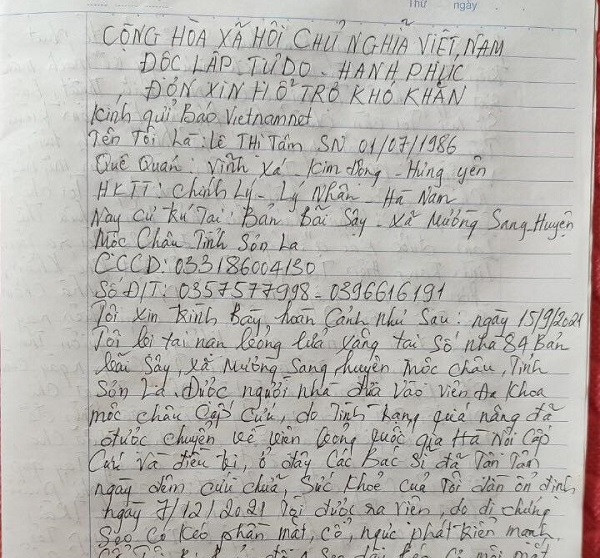 Thứ ngày
CỘNG HÒA XÃ HỘI CHỦ NGHĨA VIỆT NAM
ĐỘC LẬP - TỰ DO - HẠNH PHÚC
ĐƠN XIN HỖ TRỢ KHÓ KHĂN
Kính gửi Báo Vietnamnet
Tên Tôi Là: Lê Thị Tấm SN 01/07/1986
Quê Quán: Vĩnh Xá - Kim động - Hưng yên
HKTT: Chính Lý - Lý Nhân - Hà Nam
Nay cư trú Tại: Bản Bãi Sậy - Xã Mường Sang - Huyện
Mộc Châu Tỉnh Sơn La
CCCD: 033186004130
Số Đ/T: 0357577998 - 0396616191
Tôi Xin Trình Bày hoàn Cảnh Như Sau: ngày 15/9/2021
Tôi bị tai nạn bỏng lửa xăng tại Số nhà 84 Bản
bãi Sậy, xã Mường Sang huyện mộc châu, Tỉnh
Sơn La. Được người nhà đưa Vào viện đa Khoa
mộc châu Cấp Cứu, do Tình trạng quá nặng đã
được chuyển về viện bỏng quốc gia Hà Nội Cấp
Cứu Và điều trị, ở đây Các Bác Sĩ đã Tận Tâm
ngày đêm cứu chữa, Sức Khoẻ của Tôi dần ổn định
ngày 7/12/2021 Tôi được ra viện, do di chứng
Sẹo Co Kéo phần mặt, cổ, ngực phát triển mạnh,